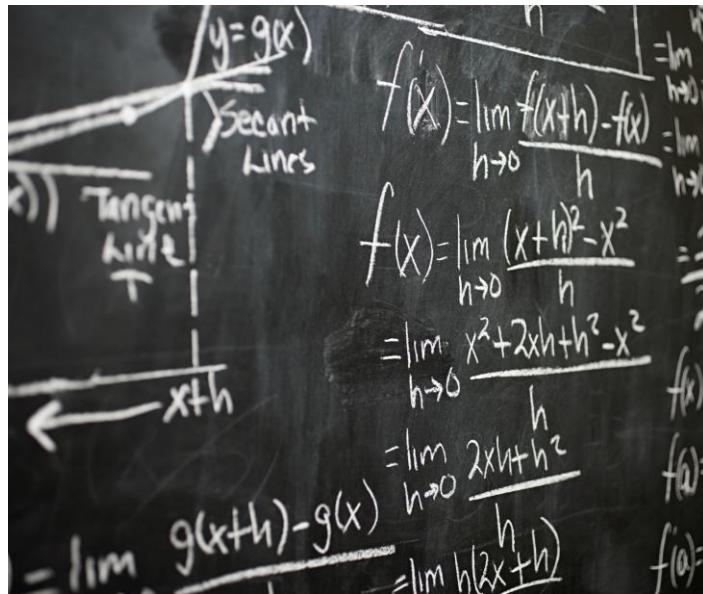 y=g(x)
Secant
Lines
x))
Tangent
Line
T
x+h
= lim g(x+h)-g(x)
h
f'(x)=lim f(x+h)-f(x)
h→0 h
f(x)=lim (x+h)²-x²
h→0 h
=lim x²+2xh+h²-x²
h→0 h
=lim 2xh+h²
h→0 h
=lim h(2x+h)
=lim
h→0
=lim
h→0
f(x)
f(a)=
f'(a)=